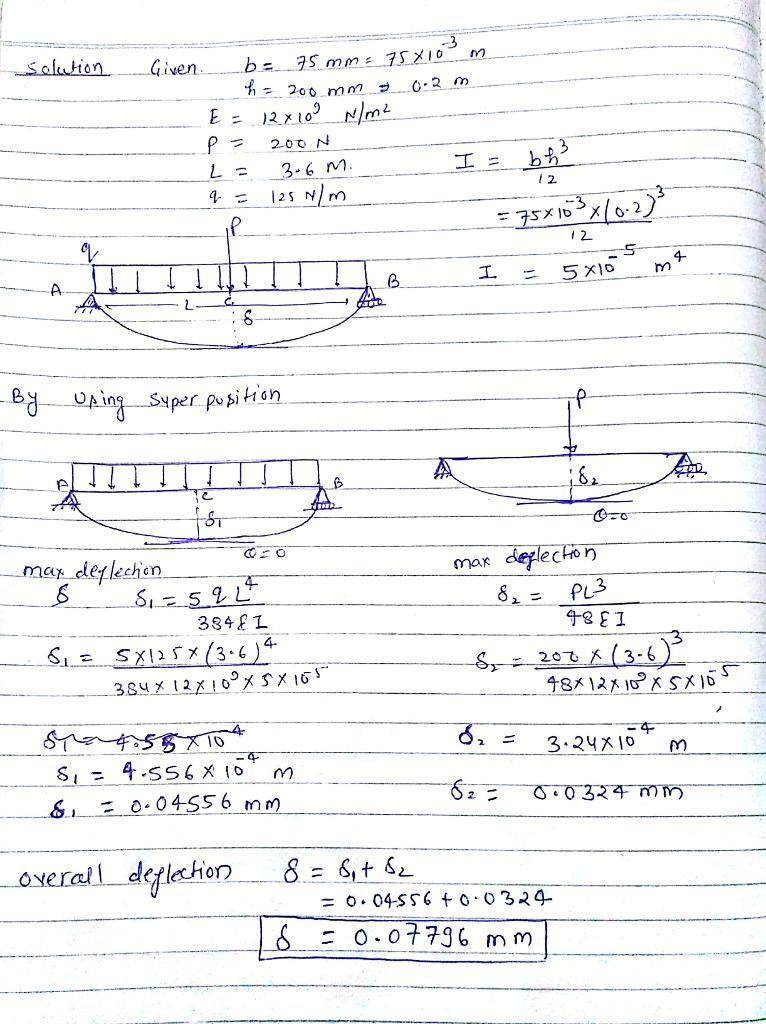 Solution Given. b = 75 mm = 75 × 10⁻³ m
h = 200 mm ⇒ 0.2 m
E = 12 × 10⁹ N/m²
P = 200 N
L = 3.6 m.
q = 125 N/m
I = bh³/12
= 75 × 10⁻³ × (0.2)³/12
I = 5 × 10⁻⁵ m⁴
P
q
A L C B
δ
By Using Superposition
P
A C B
δ₁
θ = 0
δ₂
θ = 0
max deflection
δ δ₁ = 5qL⁴/384EI
δ₁ = 5×125×(3.6)⁴/384×12×10⁹×5×10⁻⁵
δ₁ = 4.556 × 10⁻⁴ m
δ₁ = 0.04556 mm
max deflection
δ₂ = PL³/48EI
δ₂ = 200 × (3.6)³/48×12×10⁹×5×10⁻⁵
δ₂ = 3.24×10⁻⁴ m
δ₂ = 0.0324 mm
overall deflection δ = δ₁ + δ₂
= 0.04556 + 0.0324
δ = 0.07796 mm